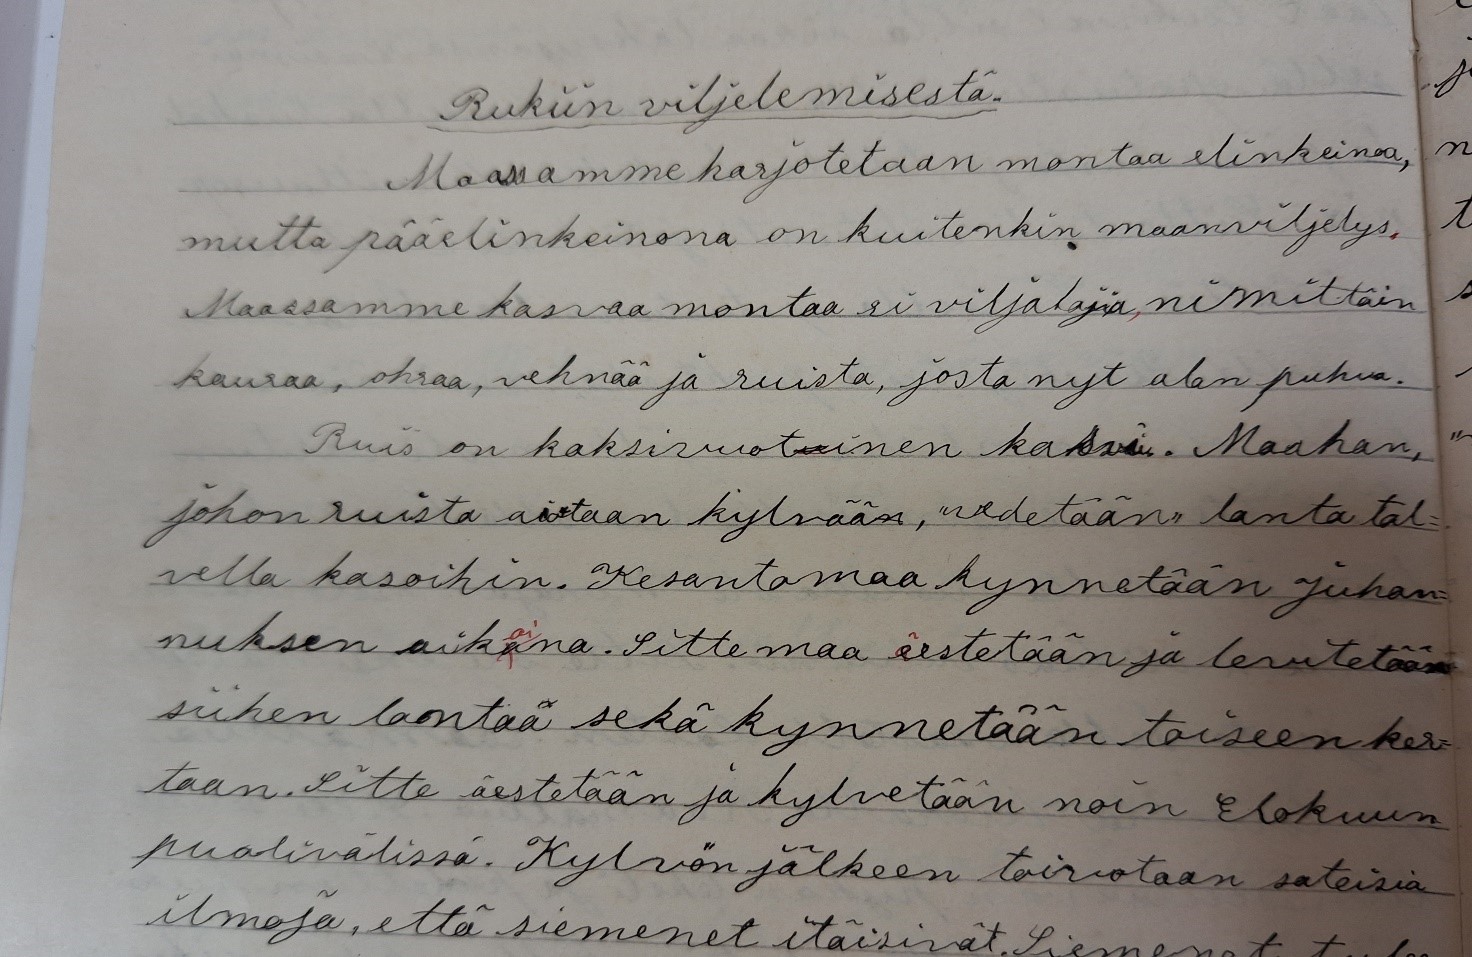 Rukiin viljelemisestä.
Maassamme harjotetaan montaa elinkeinoa,
mutta pääelinkeinona on kuitenkin maanviljelys.
Maassamme kasvaa montaa eri viljalajia, nimittäin
kauraa, ohraa, vehnää ja ruista, josta nyt alan puhua.
Ruis on kaksivuotinen kasvi. Maahan,
johon ruista aiotaan kylvää, "vedetään" lanta tal=
vella kasoihin. Kesantomaa kynnetään Juhan=
nuksen aikoina. Sitte maa äestetään ja levitetään
siihen lantaa sekä kynnetään toiseen ker=
taan. Sitte äestetään ja kylvetään noin Elokuun
puolivälissä. Kylvön jälkeen toivotaan sateisia
ilmoja, että siemenet itäisivät. Siemenet